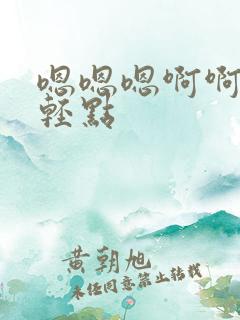 嗯嗯嗯啊啊
轻點
黄朝旭
未经同意禁止转载